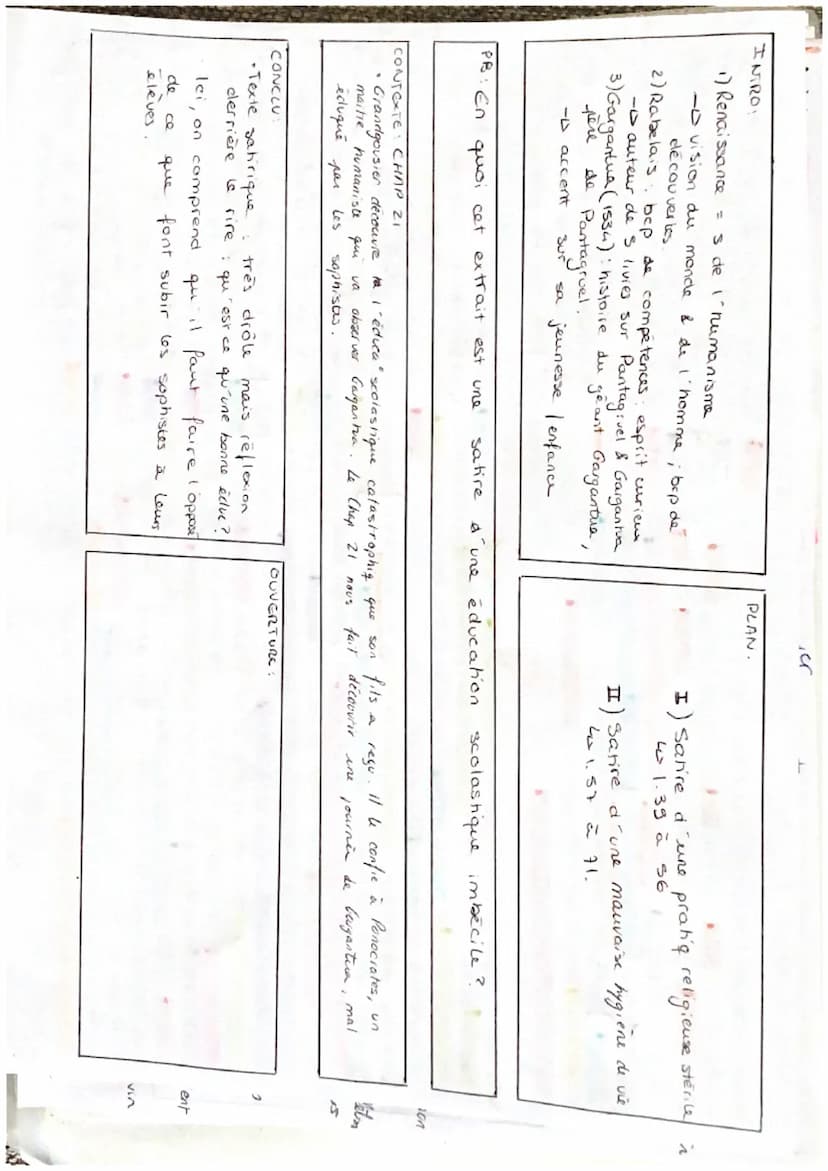 INTRO:
1) Renaissance = s de l'humanisme
→ vision du monde & de l'homme ; bcp de
découvertes.
2) Rabelais : bcp de compétences ; esprit curieux
→ auteur de 5 livres sur Pantagruel & Gargantua
3) Gargantua (1534) : histoire du géant Gargantua,
père de Pantagruel.
→ accent sur sa jeunesse / enfance
PLAN.
I) Satire d'une pratiq religieuse stérile
↳ l.39 à 56
II) Satire d'une mauvaise hygiène de vie
↳ l.57 à 71.
PB : En quoi cet extrait est une satire d'une éducation scolastique imbécile ?
CONTEXTE : CHAP 21
• Grandgousier découvre l'éduca° scolastique catastrophiq que son fils a reçu. Il le confie à Ponocrates, un
maître humaniste qui va observer Gargantua. Le Chap 21 nous fait découvrir une journée de Gargantua, mal
éduqué par les sophistes.
CONCLU :
• Texte satirique : très drôle mais réflexion
derrière le rire : qu'est ce qu'une bonne éduc ?
Ici, on comprend qu'il faut faire l'opposé
de ce que font subir les sophistes à leurs
élèves.
OUVERTURE :
ion
ent
vin